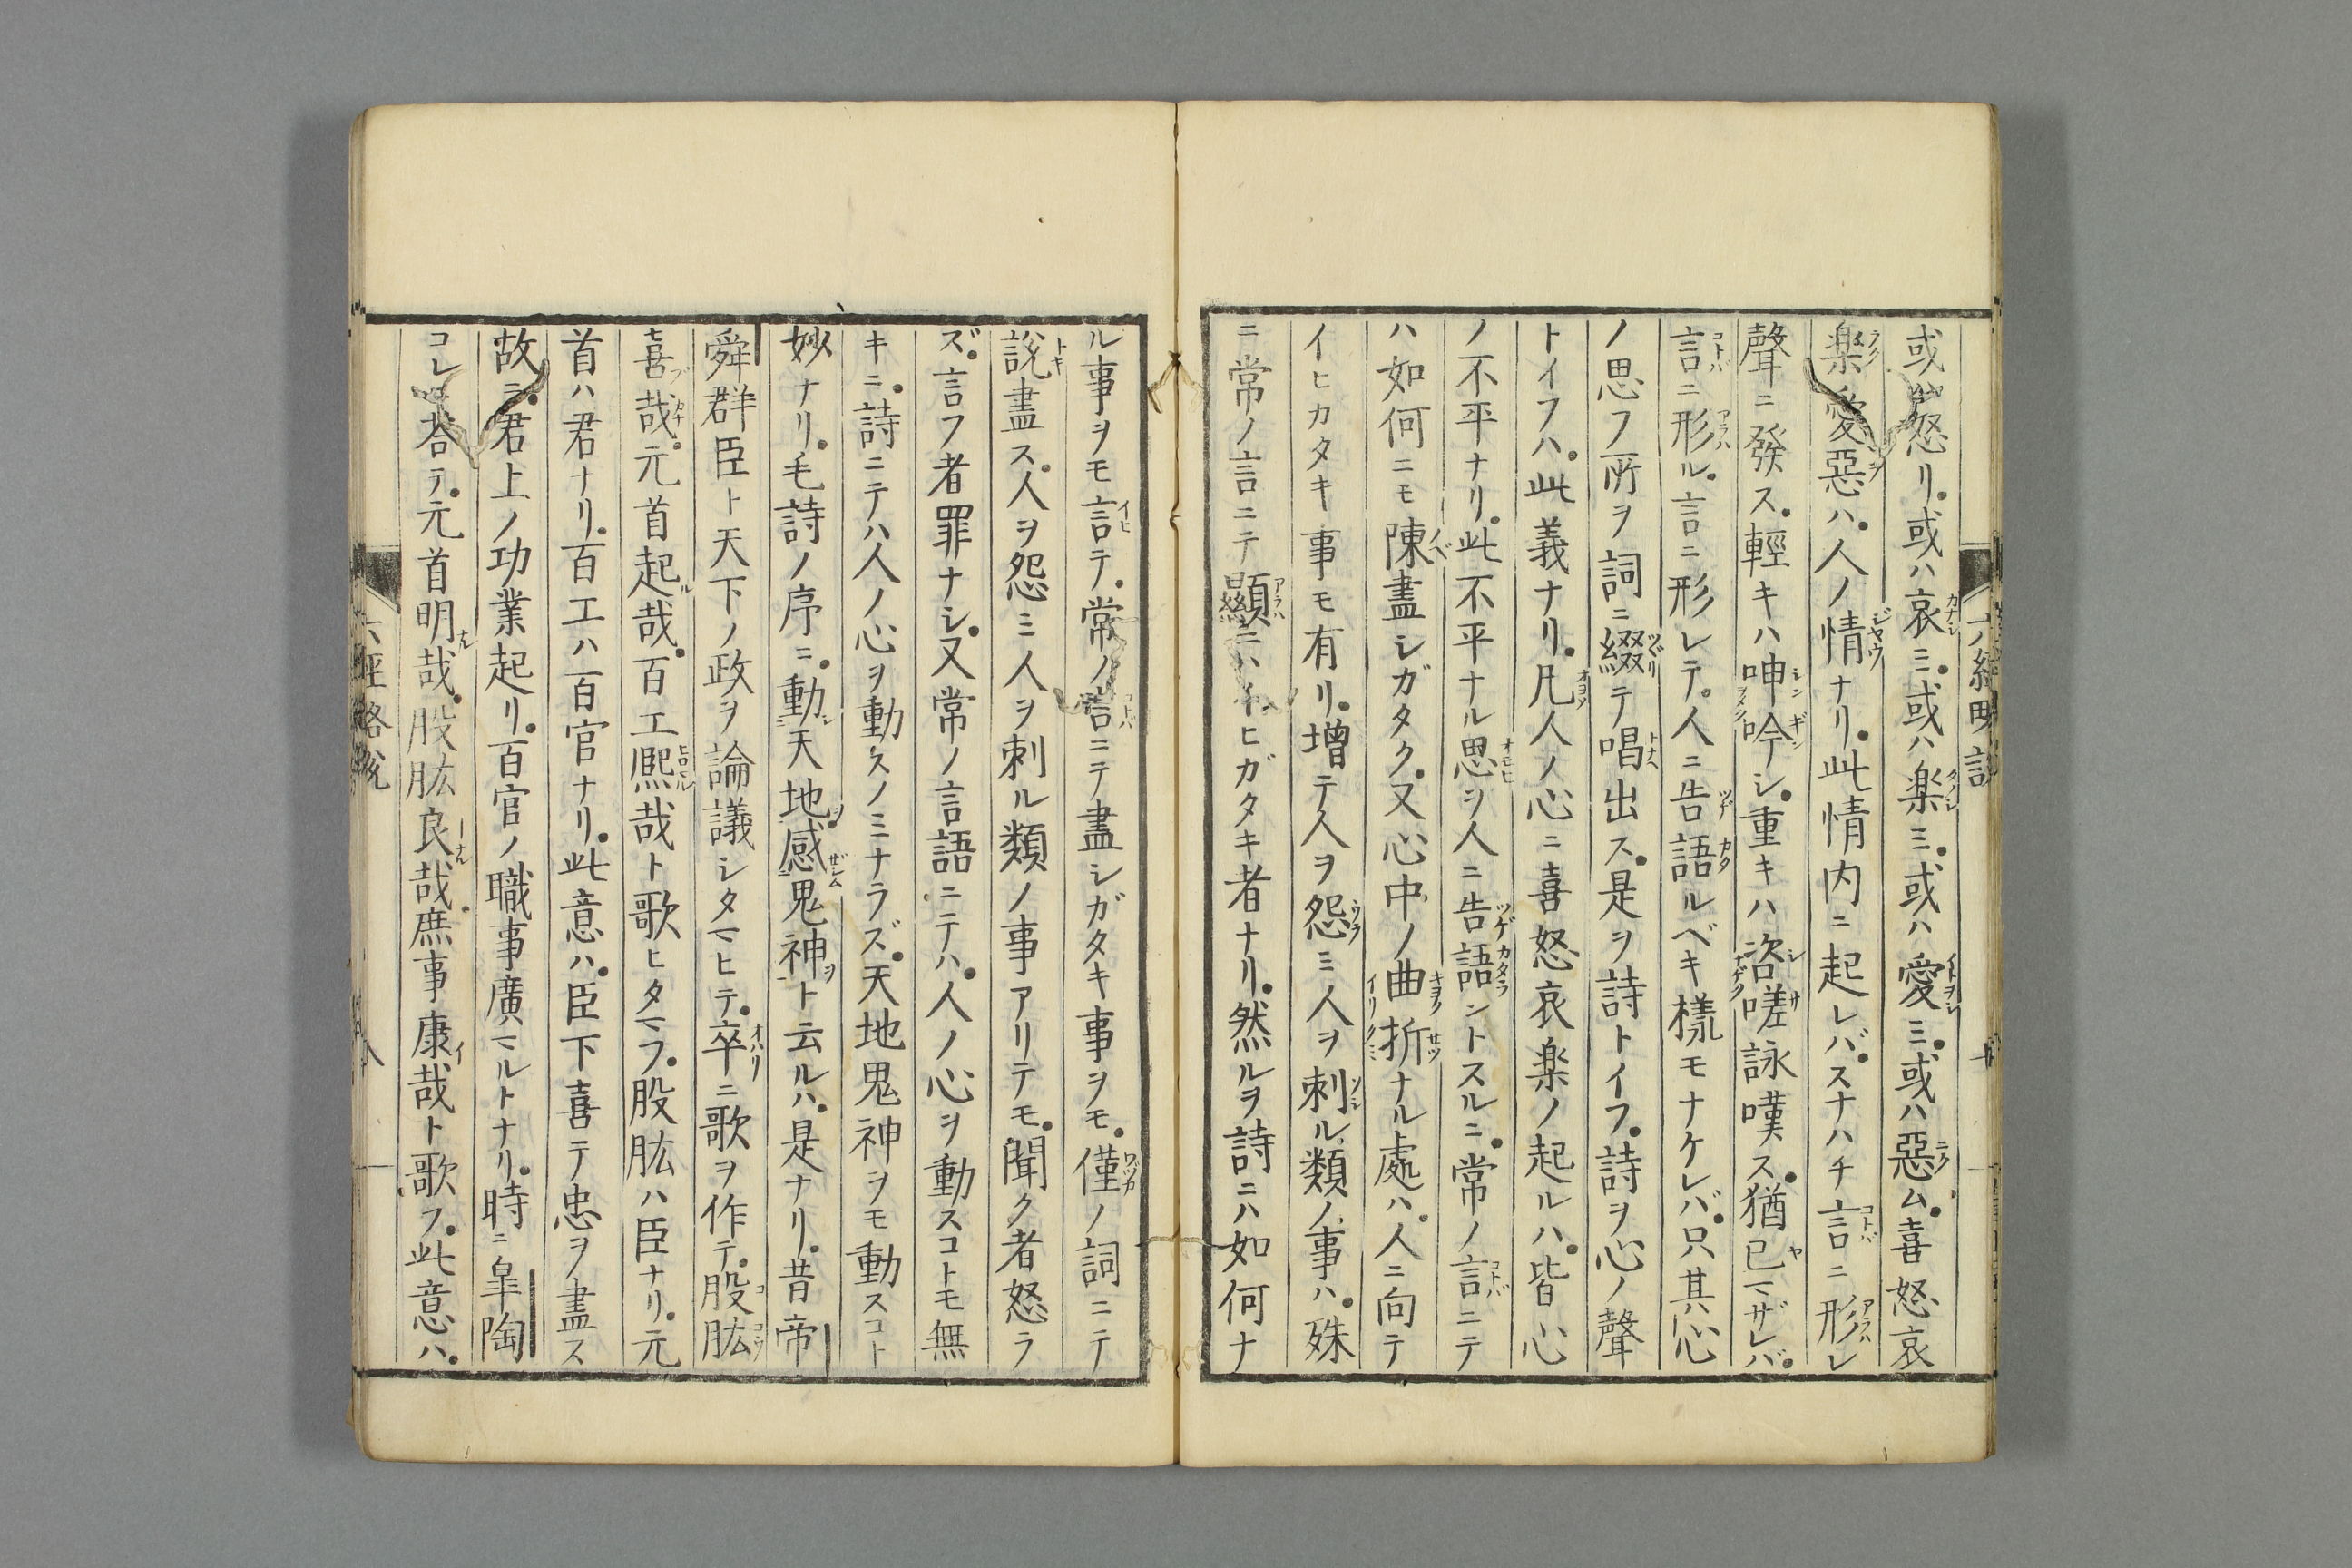 或ハ怒リ。或ハ哀ミ。或ハ楽ミ。或ハ愛ミ。或ハ惡ム。喜怒哀
楽愛惡ハ。人ノ情ナリ。此情内ニ起レバ。スナハチ言ニ形レ
聲ニ發ス。輕キハ呻吟シ。重キハ咨嗟詠嘆ス。猶已マザレバ。
言ニ形ル。言ニ形レテ。人ニ告語ルベキ樣モナケレバ。只其心
ノ思フ所ヲ詞ニ綴テ唱出ス。是ヲ詩トイフ。詩ヲ心ノ聲
トイフハ。此義ナリ。凡人ノ心ニ喜怒哀楽ノ起ルハ。皆心
ノ不平ナリ。此不平ナル思ヲ人ニ告語ントスルニ。常ノ言ニテ
ハ如何ニモ陳盡シガタク。又心中ノ曲折ナル處ハ。人ニ向テ
イヒカタキ事モ有リ。増テ人ヲ怨ミ人ヲ刺ル類ノ事ハ。殊
ニ常ノ言ニテ顯ニハイヒガタキ者ナリ。然ルヲ詩ニハ如何ナ
ル事ヲモ言テ。常ノ言ニテ盡シガタキ事ヲモ。僅ノ詞ニテ
說盡ス。人ヲ怨ミ人ヲ刺ル類ノ事アリテモ。聞ク者怒ラ
ズ。言フ者罪ナシ。又常ノ言語ニテハ。人ノ心ヲ動スコトモ無
キニ。詩ニテハ人ノ心ヲ動スノミナラズ。天地鬼神ヲモ動スコト
妙ナリ。毛詩ノ序ニ。動天地。感鬼神ト云ルハ。是ナリ。昔帝
舜群臣ト天下ノ政ヲ論議シタマヒテ。卒ニ歌ヲ作テ。股肱
喜哉。元首起哉。百工熈哉ト歌ヒタマフ。股肱ハ臣ナリ。元
首ハ君ナリ。百工ハ百官ナリ。此意ハ。臣下喜テ忠ヲ盡ス
故ニ。君上ノ功業起リ。百官ノ職事廣マルトナリ。時ニ皐陶
コレニ荅テ。元首明哉。股肱良哉。庶事康哉ト歌フ。此意ハ。
六經略說
八